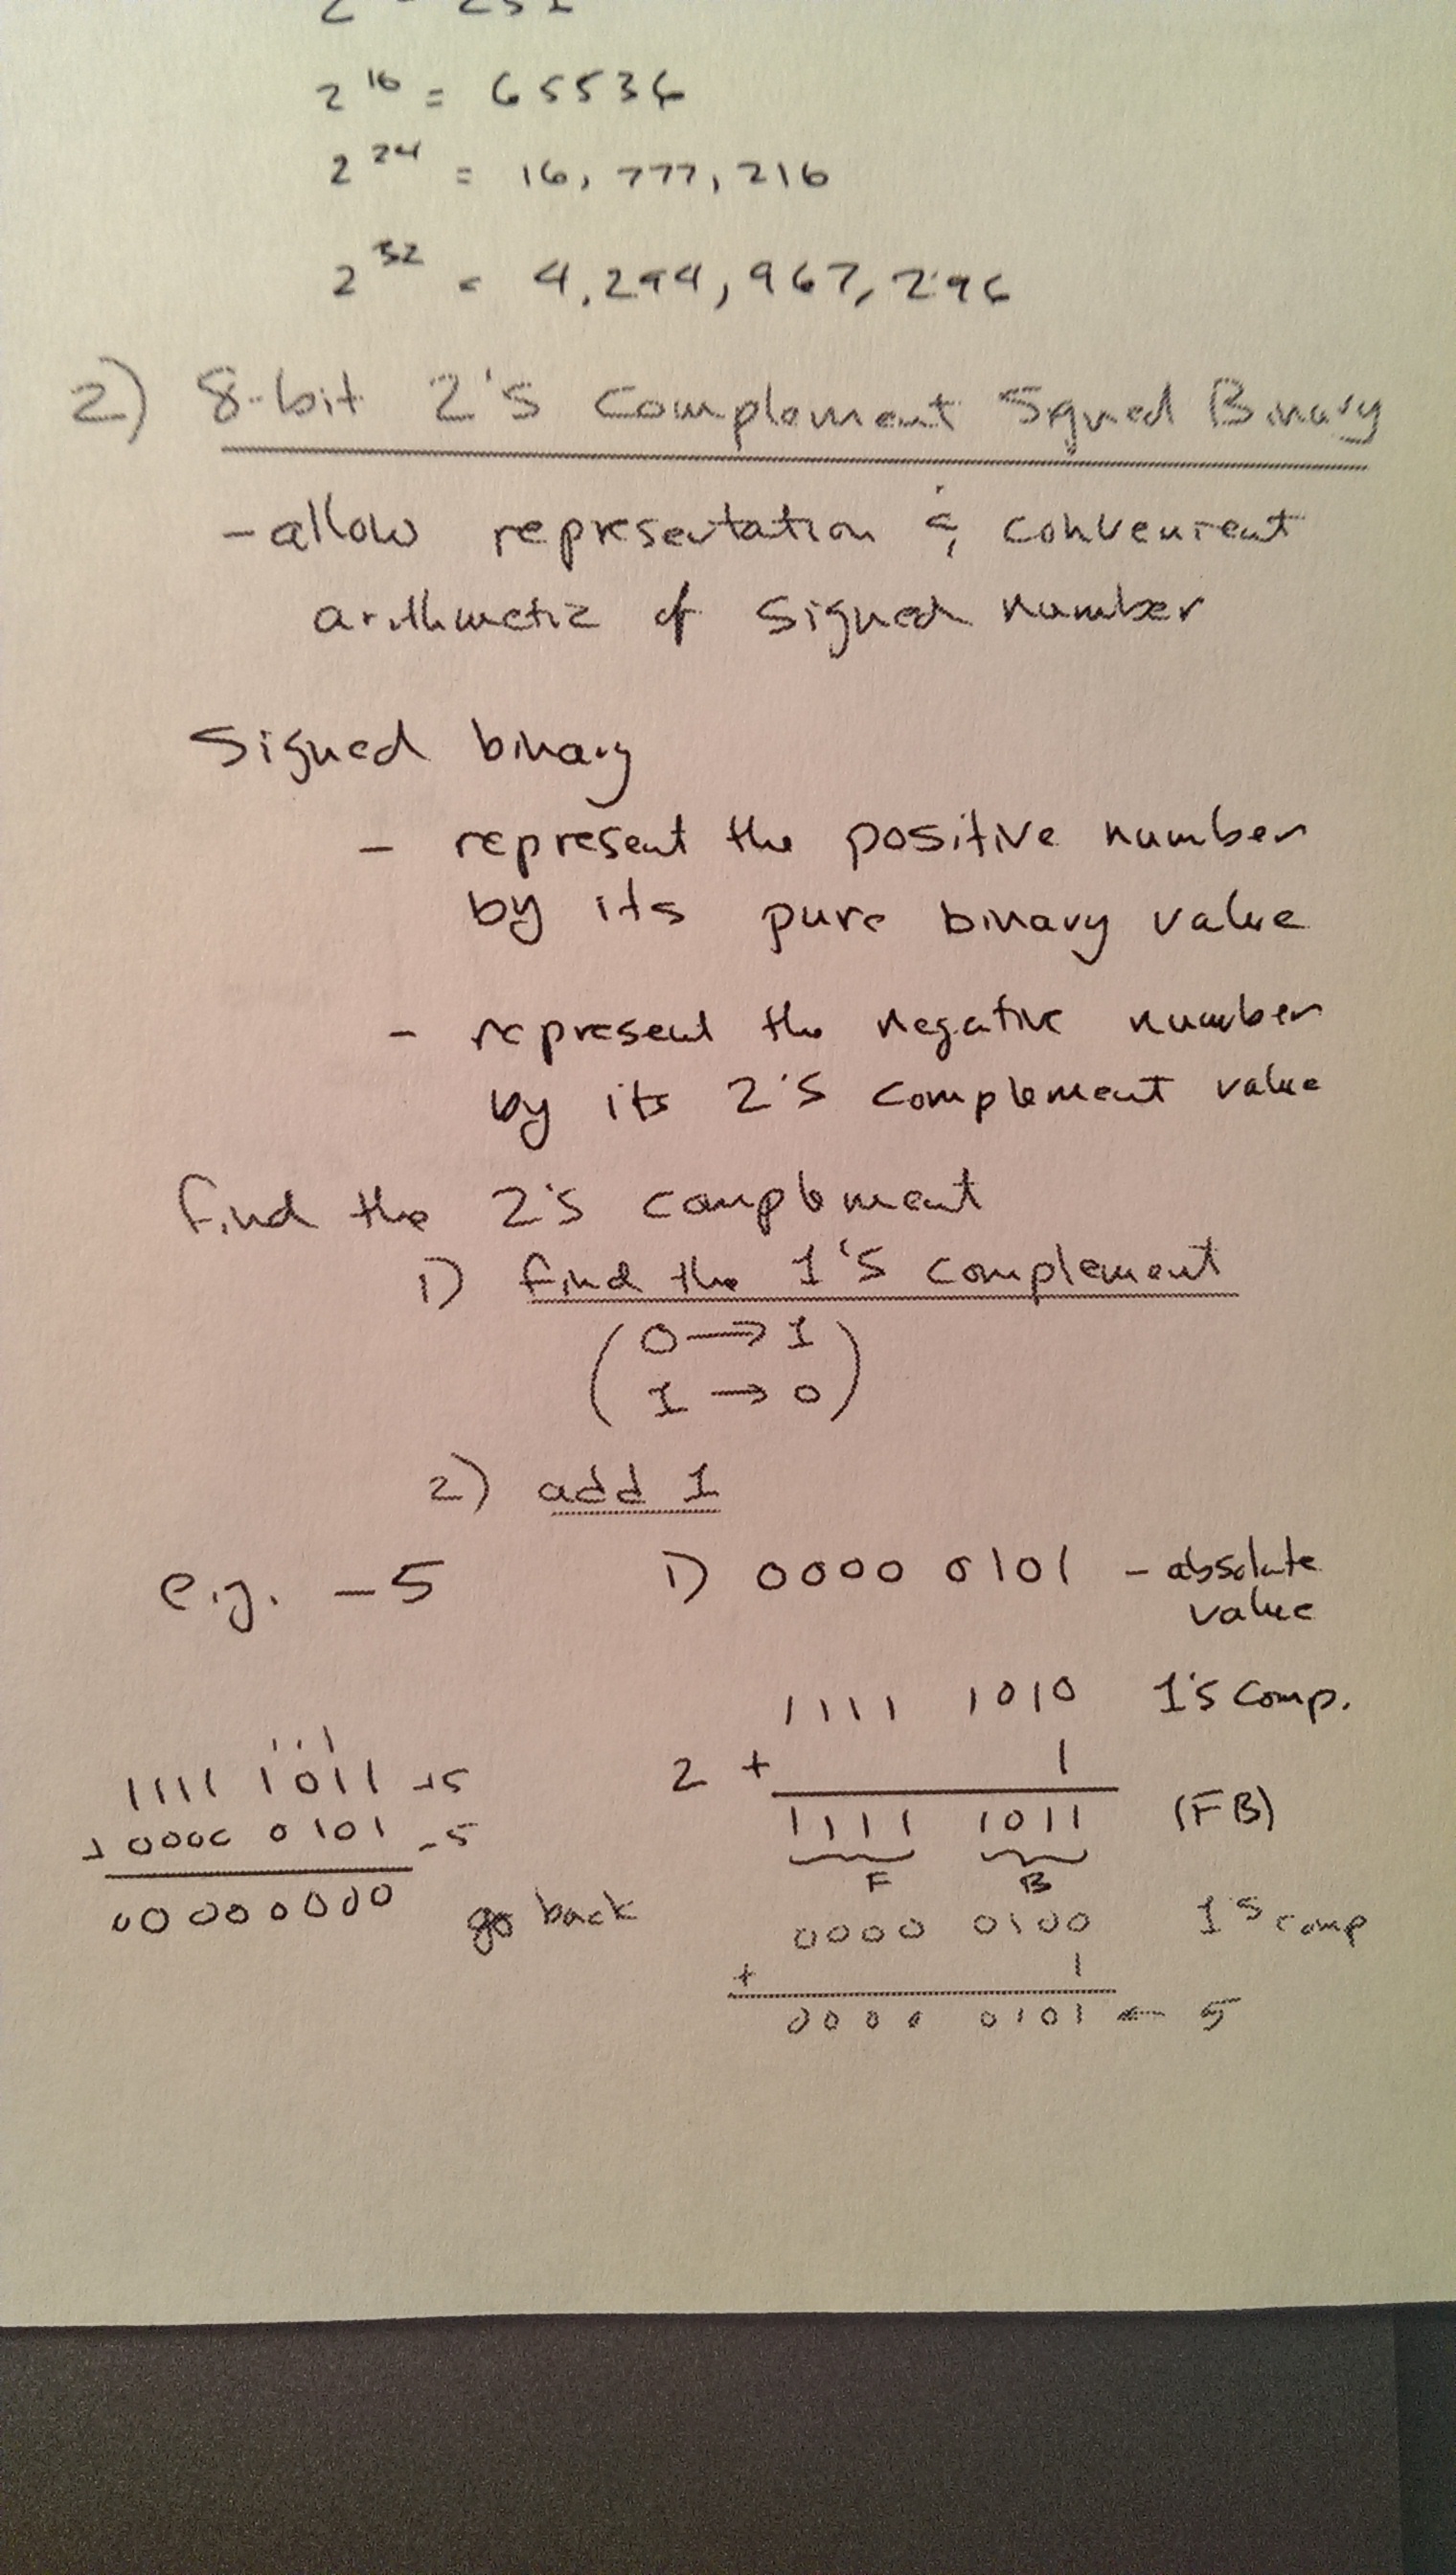 2^16 = 65536
2^24 = 16,777,216
2^32 = 4,294,967,296
2) 8-bit 2's Complement Signed Binary
- allow representation & convenient
arithmetic of signed number
Signed binary
- represent the positive number
by its pure binary value
- represent the negative number
by its 2's complement value
find the 2's complement
1) find the 1's complement
(0 → 1
1 → 0)
2) add 1
e.g. -5 1) 0000 0101 - absolute
value
1111 1010 1's comp.
2 + 1
1111 1011 (FB)
F B
0000 0100 1's comp
+ 1
0000 0101 ← 5
1111 1011 +5
+ 0000 0101 -5
00000000 go back